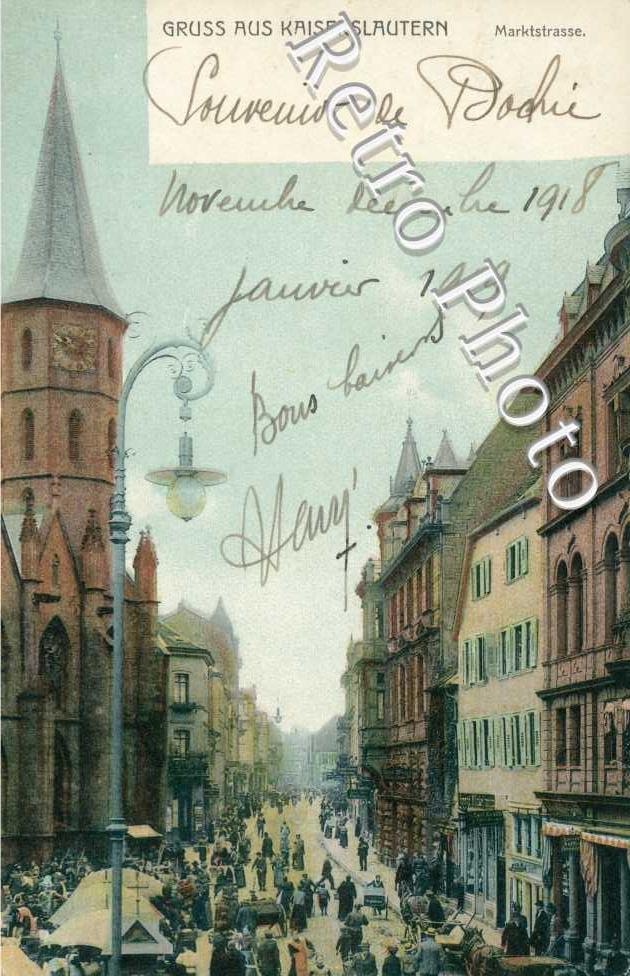 GRUSS AUS KAISERSLAUTERN Marktstrasse.
Souvenir de Bochie
Novembre décembre 1918
Janvier 1919
Bons baisers
Henry
Retro Photo